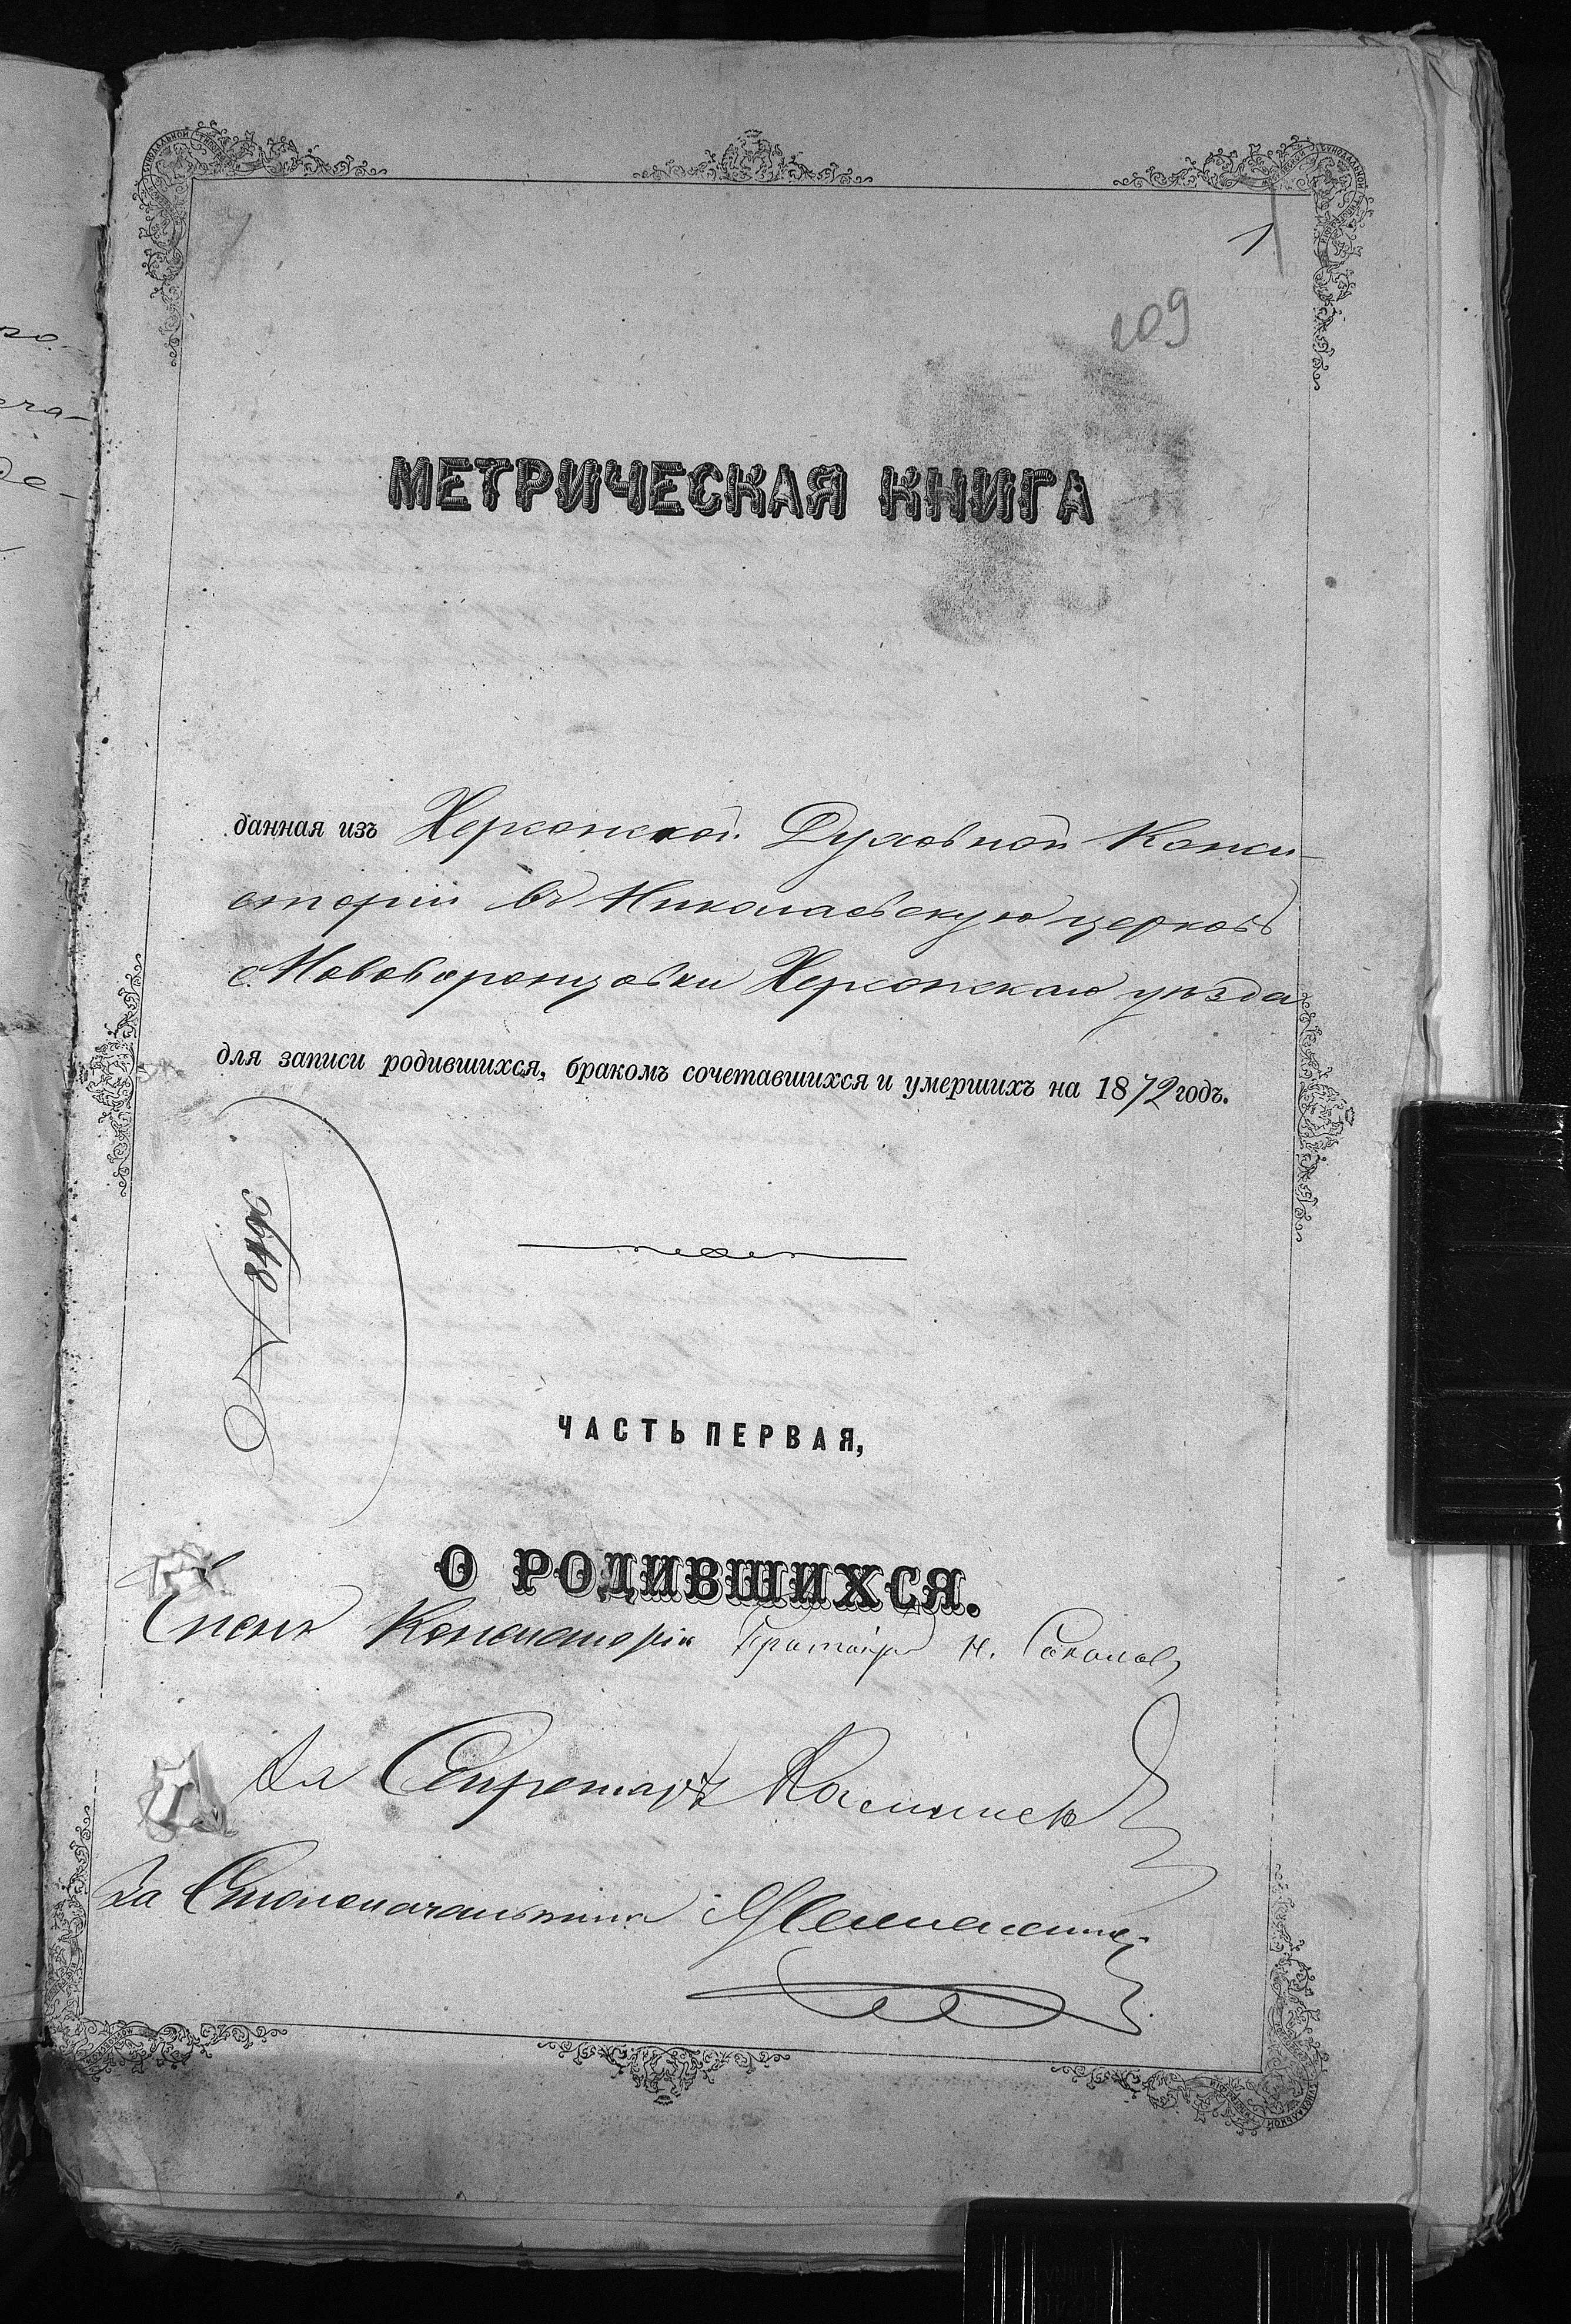 1
209
МЕТРИЧЕСКАЯ КНИГА
данная изъ Херсонской Духовной Конси-
сторіи въ Николаевскую церковь
с. Нововоронцовки Херсонскаго уѣзда
для записи родившихся, бракомъ сочетавшихся и умершихъ на 1872 годъ.
№ 8496
ЧАСТЬ ПЕРВАЯ,
О РОДИВШИХСЯ.
Членъ Консисторіи Протоіерей Н. Соколовъ
За Секретаря
За Столоначальника